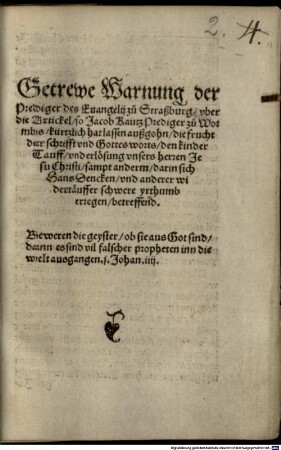 2. 4.
Getrewe Warnung der
Prediger des Euangelij zů Straßburg/ vber
die Artickel/ so Jacob Kautz Prediger zů Wor
mbs/ kürtzlich hat lassen außgohn/ die frucht
der schrifft vnd Gottes worts/ den kinder
Tauff/ vnd erlösung vnsers herren Je
su Christi/ sampt anderm/ darin sich
Hans Dencken/ vnd anderer wi
dertäuffer schwere yrthumb
erregen/ betreffend.
Beweren die geyster/ ob sie aus Got sind/
dann es sind vil falscher propheten inn die
welt ausgangen. j. Johan. iiij.